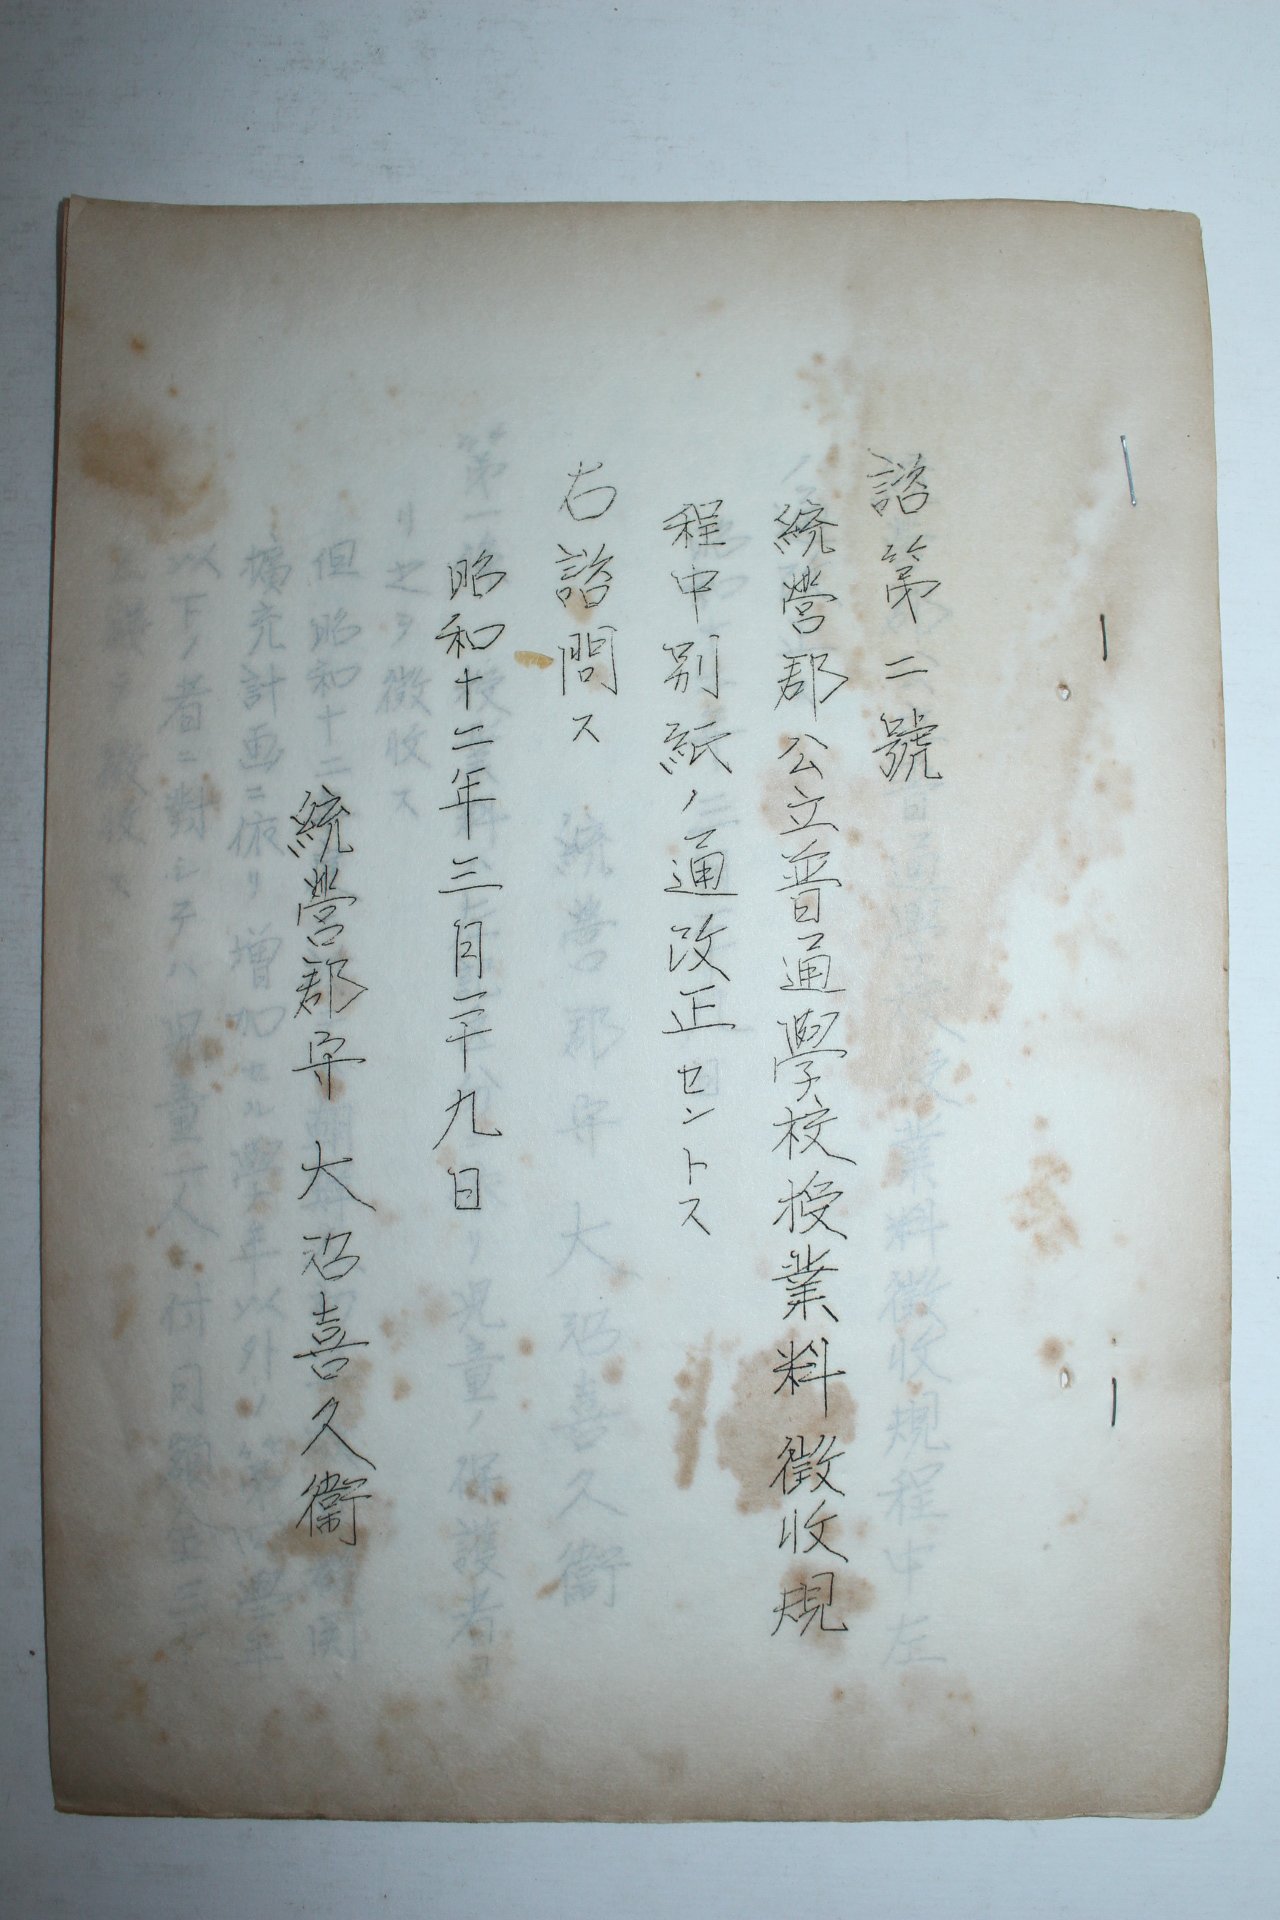 諮第二號
統營郡公立普通學校授業料徵收規
程中別紙ノ通改正セントス
右諮問ス
昭和十二年三月二十九日
統營郡守 大沼喜久衞